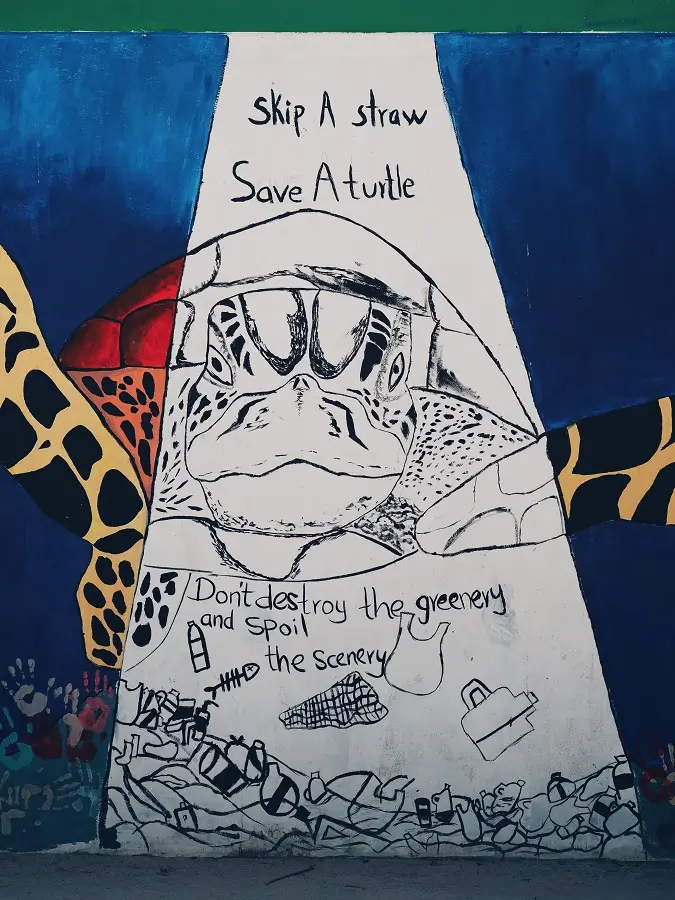 Skip A straw
Save A turtle
Don't destroy the greenery
and spoil
the scenery